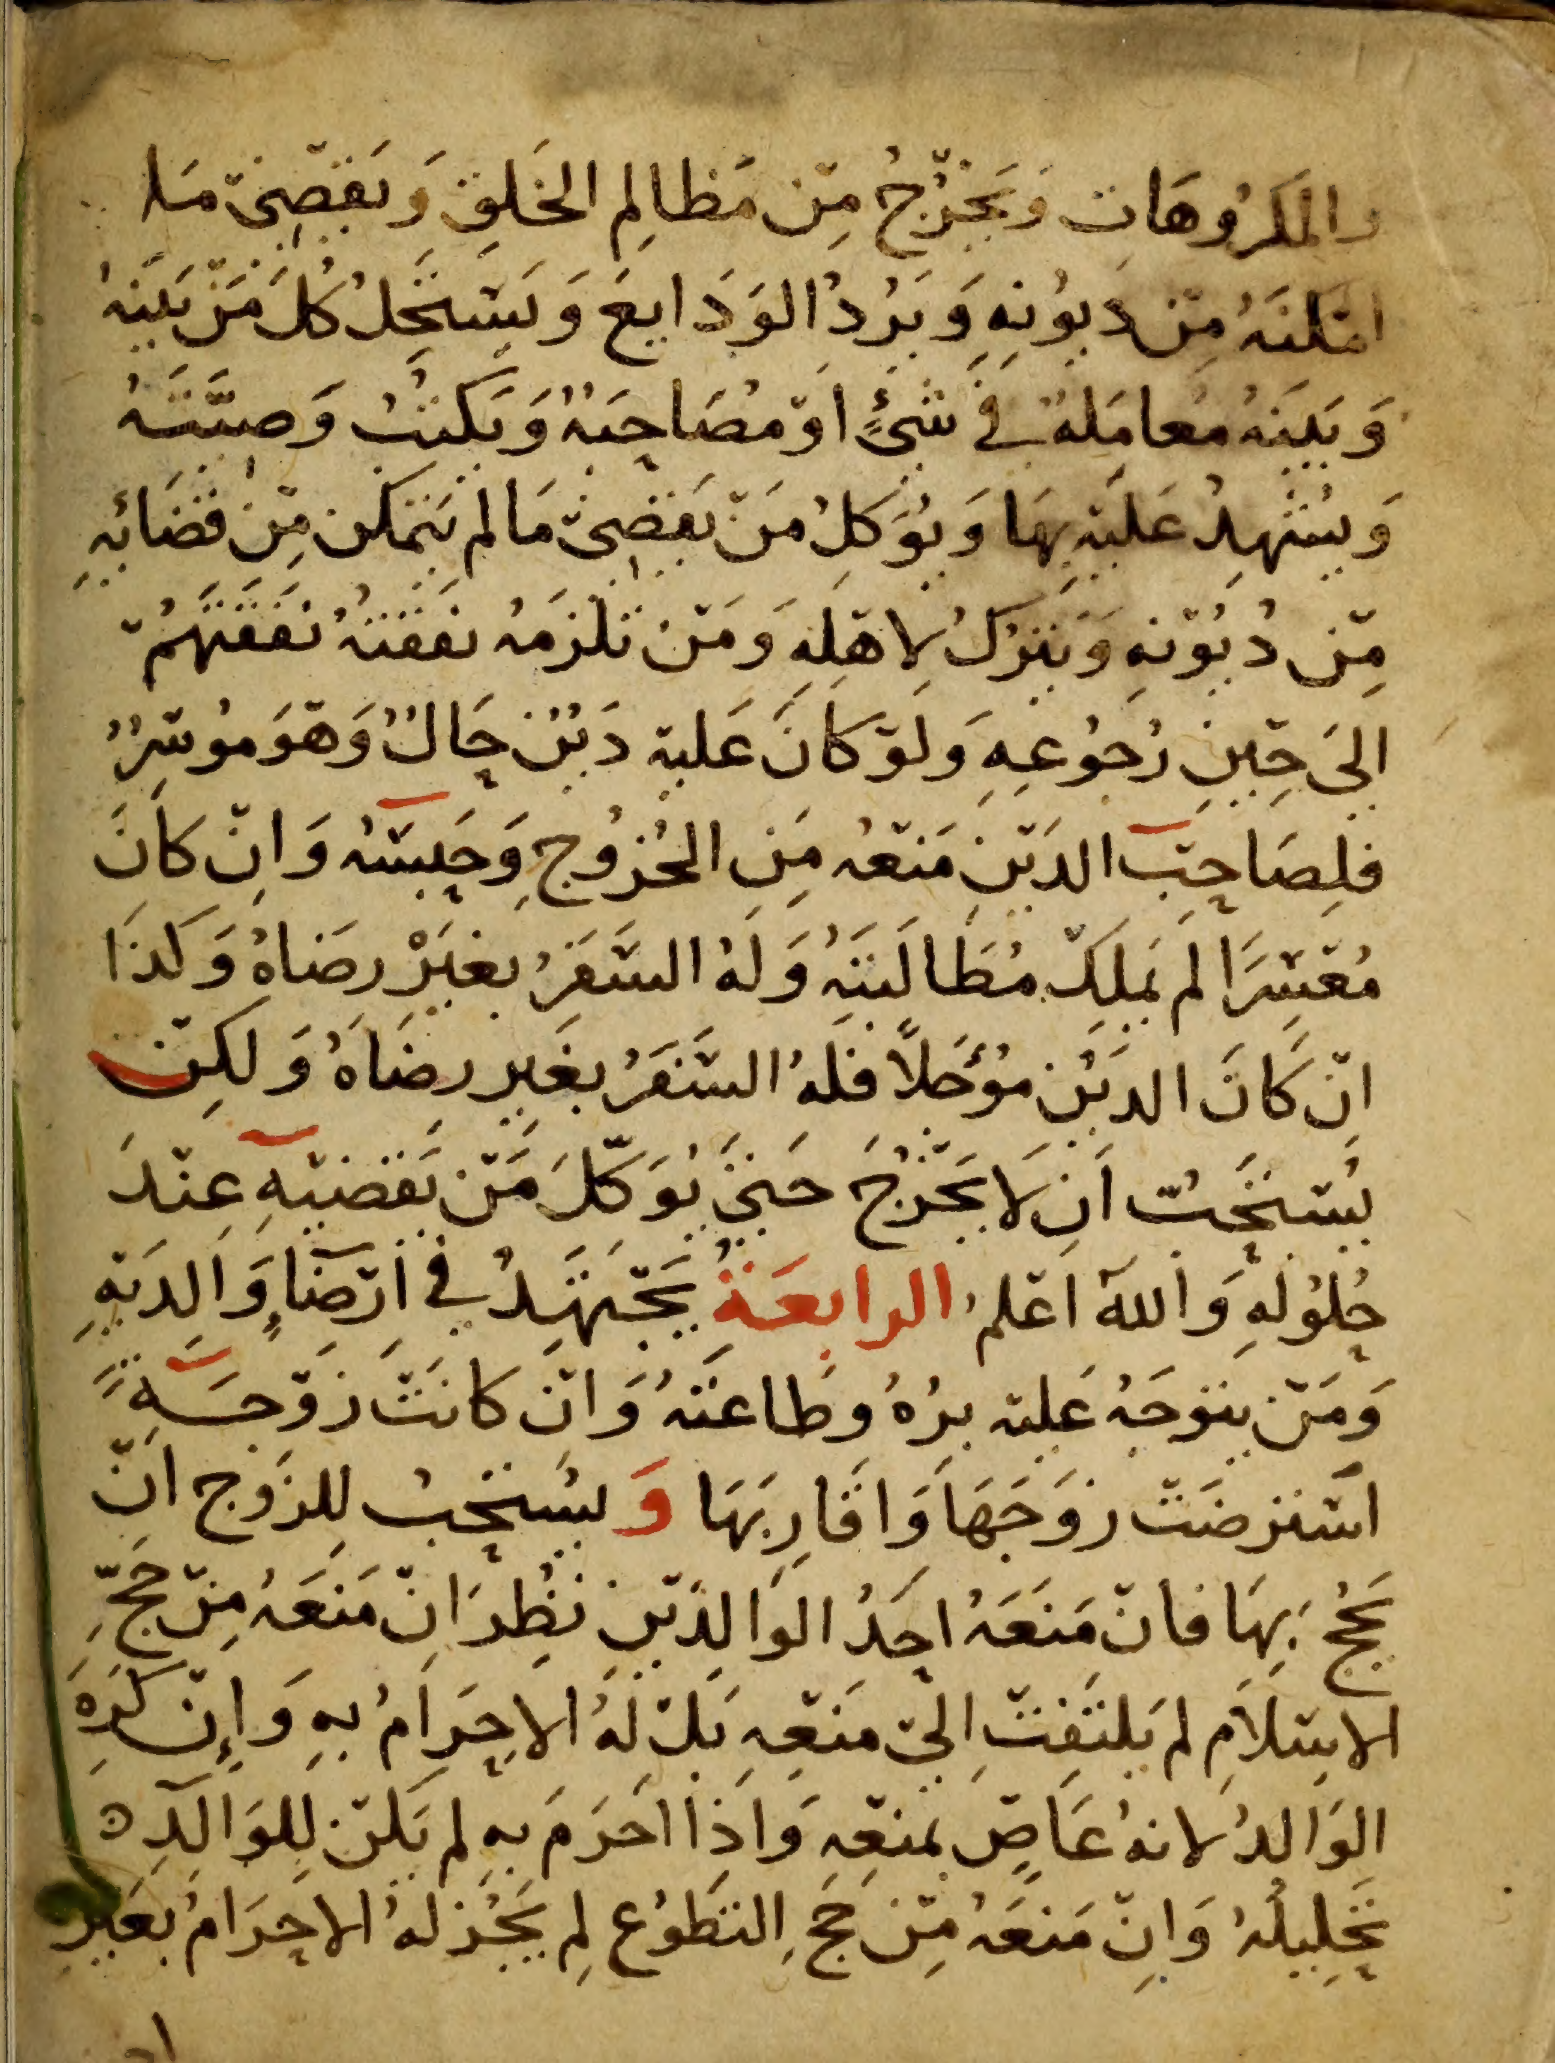 والمَكرُوهَاتِ وَيَخْرُجُ مِنْ مَظالِمِ الخَلقِ وَيَقْضِيْ مَا
امْكنَهُ مِنْ دُيُونِهِ وَيَرُدُّ الوَدَايِعَ وَيَسْتَحِلُّ كُلَّ مَنْ بَيْنَهُ
وَبَيْنَهُ مُعَامَلةٌ في شَيْءٍ اوْ مُصَاحَبَةٌ وَيَكتُبُ وَصيَّتَهُ
وَيُشْهِدُ عَليْهِ بِهَا وَيُوَكِلُ مَنْ يَقْضِيْ مَا لم يَتمكن مِنْ قضَائِهِ
مِنْ دُيُوْنِهِ وَيَترُكُ لِاهْلِهِ وَمَنْ تلزَمُه نفَقتُهُ نَفَقَتَهُمْ
اِلىَ حِيْنِ رُجُوعِهِ وَلوْ كَانَ عَليْهِ دَيْنٌ حَالٌّ وَهْوَ مُوْسِرٌ
فلِصَاحِبِ الدَيْنِ مَنْعُه مِنَ الخُرُوْجِ وَحَبْسَهُ وَاِنْ كَانَ
مُعْسِرًا لم يَملِكْ مُطَالَبَتَهُ وَلَهُ السَفَرُ بغَيْرِ رِضَاهُ وَكذَا
اِنْ كَانَ الدَيْن مُؤجَلاً فلهُ السَّفَرُ بغَيرِ رِضَاهُ وَلكِنْ
يُسْتَحَبُّ اَنْ لَا يَخْرُجَ حَتىَّ يُوَكِّلَ مَنْ يَقضيْهِ عِنْدَ
حُلُوْلِهِ وَاللهُ اَعْلمُ الرابعَةُ يَجْتهِدُ في اِرْضَاءِ وَالِدَيْهِ
وَمَنْ يتوَجَهُ عَليْهِ بِرُهُ وَطاعَتُهُ وَانْ كانَتْ زَوْجَة
اسْتَرضَتْ زوَجَهَا وَاقَارِبَهَا وَيُسْتحَبُ لِلزَوج انْ
يَحُجَّ بِهَا فانْ مَنَعَهُ احَدُ الوَالِدَيْنِ نُظِرَ اِنْ مَنَعَهُ مِنْ حَجِّ
الاِسْلاَمِ لم يَلتفِتْ اِلىْ مَنْعِهِ بَلْ لهُ الاِحْرَامُ بِهِ وَإِنْ كَرِهَ
الوَالِدُ لانهُ عَاصٍ بمنْعِهِ وَاِذا احَرَمَ بِهِ لم يَكنْ لِلوَالِدِ
تَحْلِيلُهُ وَاِنْ مَنَعَهُ مِنْ حَجِ التطَوُعِ لم يَجُزْ لهُ الاِحْرَامُ بغَيْرِ